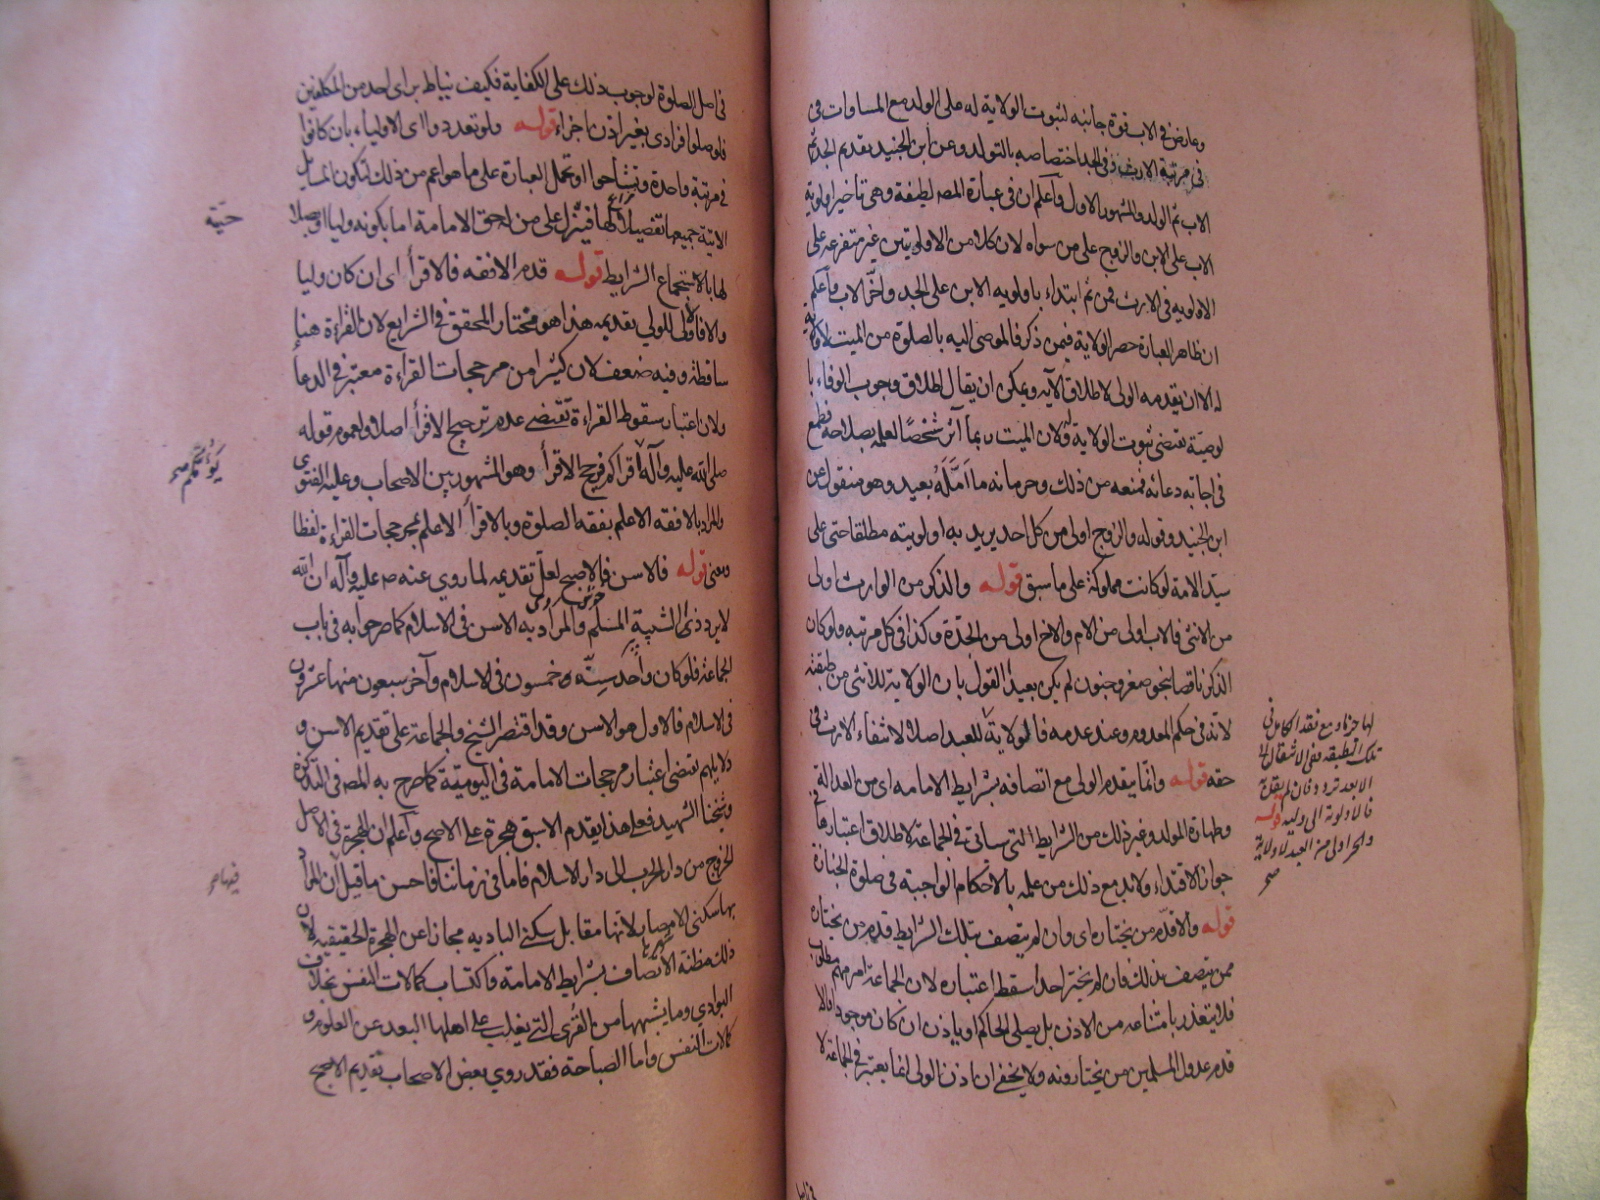 وعارض في الاب قوة جانبه لثبوت الولاية له على الولد مع المساوات في
في مرتبة الارث وفي الجد اختصاصه بالتولد وعن ابن الجنيد تقديم الجد ثم
الاب ثم الولد والمشهور الاول وآعلم ان في عبارة المصـ لطيفة وهي تأخير اولوية
الاب على الابن والزوج على من سواه لان كلا من الاولويتين غير متفرعه على
الاولويه في الارث فمن ثم ابتداء باولويه الابن على الجد واخّر الاب وآعلم
ان ظاهر العبارة حصر الولاية فيمن ذكر فالموصى اليه بالصلوة من الميت لا ولاية
له الا ان يقدمه الولى لاطلاق الآيه ويمكن ان يقال اطلاق وجوب الوفاء با
لوصيّة يقتضي ثبوت الولاية ولان الميت ربما آثر شخصًا لعلمه بصلاحه فطمع
في اجابة دعائه فمنعه من ذلك وحرمانه ما امّله بعيد وهو منقول عن
ابن الجنيد وقوله والزوج اولى من كل احد يريد به اولويته مطلقا حتى على
سيّد الامة لو كانت مملوكة على ما سبق قوله والذكر من الوارث اولى
من الانثى فالاب اولى من الام والاخ اولى من الجدّة وكذا في كل مرتبه ولو كان
الذكر ناقصا بنحو صغر وجنون لم يكن بعيدا القول بان الولاية للانثى من طبقته
لانه في حكم المعدوم وعند عدمه فالولاية للعبد اصلا لانتفاء الارث في
حقه قوله وانّما يتقدم الولى مع اتصافه بشرايط الامامه اى من العدالة
وطهارة المولد وغير ذلك من الشرايط التي سياتى في الجماعة لاطلاق اعتبارها في
جواز الاقتداء ولابد مع ذلك من علمه بالاحكام الواجبة في صلوة الجنازة
قوله والا قدّم من يختاره اى وان لم يتصف بتلك الشرايط قدم من يختاره
ممن يتصف بذلك فان لم يختر احدا سقط اعتباره لان الجماعة امر مهم مطلوب
فلا يتعذر بامتناعه من الاذن بل يصلى الحاكم او ياذن ان كان موجودا والا
قدم عدول المسلمين من يختارونه ولا يخفى ان اذن الولى انما يعتبر في الجماعة لا
لها حينئذ ومع فقد الكامل في
تلك الطبقه ففي الانتقال الى
الابعد تردد فان لم ينتقل
فالاولوية الى وليه قوله
والحر اولى من العبد لا ولاية
صح
في اصل الصلوة لوجوب ذلك على الكفاية فكيف يناط براى احد من المكلفين
فلو صلوا فرادى بغير اذن اجزاء قوله ولو تعددوا اى الاولياء بان كانوا
في مرتبة واحدة وتشاحوا او تحمل العبارة على ما هو اعم من ذلك لتكون المسايل
الاتية جميعها تفصيلا لها فينزل على من احق الامامة اما بكونه وليا او صلا
لها بالاستجماع الشرايط قوله قدم الافقه فالاقرأ اى ان كان وليا
والا فالاولى للولي تقديمه هذا هو مختار المحقق في الشرايع لان القراءة هنا
ساقطة وفيه ضعف لان كثيرا من مرجحات القراءة معتبر في الدعا
ولان اعتبار سقوط القراءة تقتضي عدم ترجيح الاقرأ اصلا ولعموم قوله
صلى الله عليه وآله اقراكم فرجح الاقرأ وهو المشهور بين الاصحاب وعليه الفتوى
والمراد بالافقه الاعلم بفقه الصلوة وبالاقرأ الاعلم بمرجحات القراءة لفظا
ومعنى قوله فالاسن فالاصبح لعلّ تقديمه لما روي عنه صـ عليه وآله ان الله
لا يرد ذى الشيبة المسلم والمراد به الاسن في الاسلام كما صرحوا به في باب
الجماعة فلو كان واحد سنّه خمسون في الاسلام وآخر سبعون منها عشرون
في الاسلام فالاول هو الاسن وقد اقتصر الشيخ والجماعة على تقديم الاسن و
دلايلهم تقتضى اعتبار مرجحات الامامة في اليوميّة كما صرح به المصـ في التذكرة
وشيخنا الشهيد فعلى هذا يقدم الاسبق هجرة على الاصبح وآعلم ان الهجرة في الاصل
الخروج من دار الحرب الى دار الاسلام فاما في زماننا فاحسن ما قيل ان المراد
بها سكنى الامصار لانها مقابل سكنى الباديه مجازا عن الهجرة الحقيقيه لان
ذلك مظنة الاتصاف بشرايط الامامة واكتساب كمالات النفس بخلاف
البوادي وما يشبهها من القرى التي يغلب على اهلها البعد عن العلوم و
كمالات النفس واما الصباحة فقد روي بعض الاصحاب تقديم الاصبح
يؤمكم صح
فيها صح